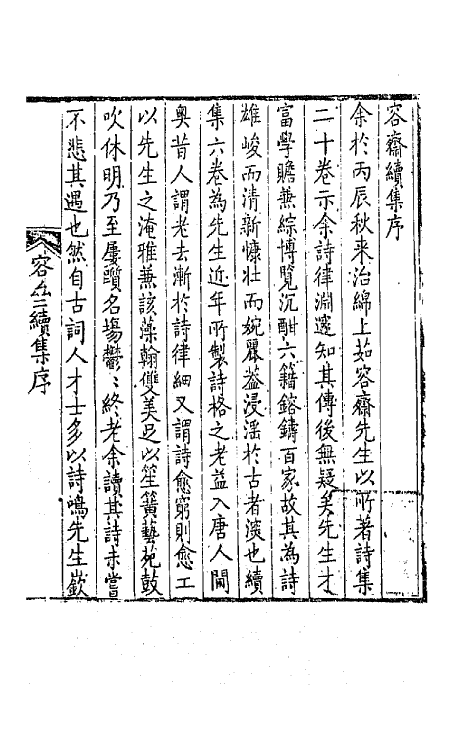 容齋續集序
余於丙辰秋来治綿上茹容齋先生以所著詩集
二十卷示余詩律淵邃知其傳後無疑矣先生才
富學贍兼綜博覽沉酣六籍鎔鑄百家故其為詩
雄峻而清新慷壯而婉麗葢浸淫於古者深也續
集六卷為先生近年所製詩格之老益入唐人閫
奥昔人謂老去漸於詩律細又謂詩愈窮則愈工
以先生之淹雅兼該藻翰雙美足以笙簧藝苑鼓
吹休明乃至屢躓名塲鬱〻終老余讀其詩未嘗
不悲其遇也然自古詞人才士多以詩鳴先生嶔
容 續集序